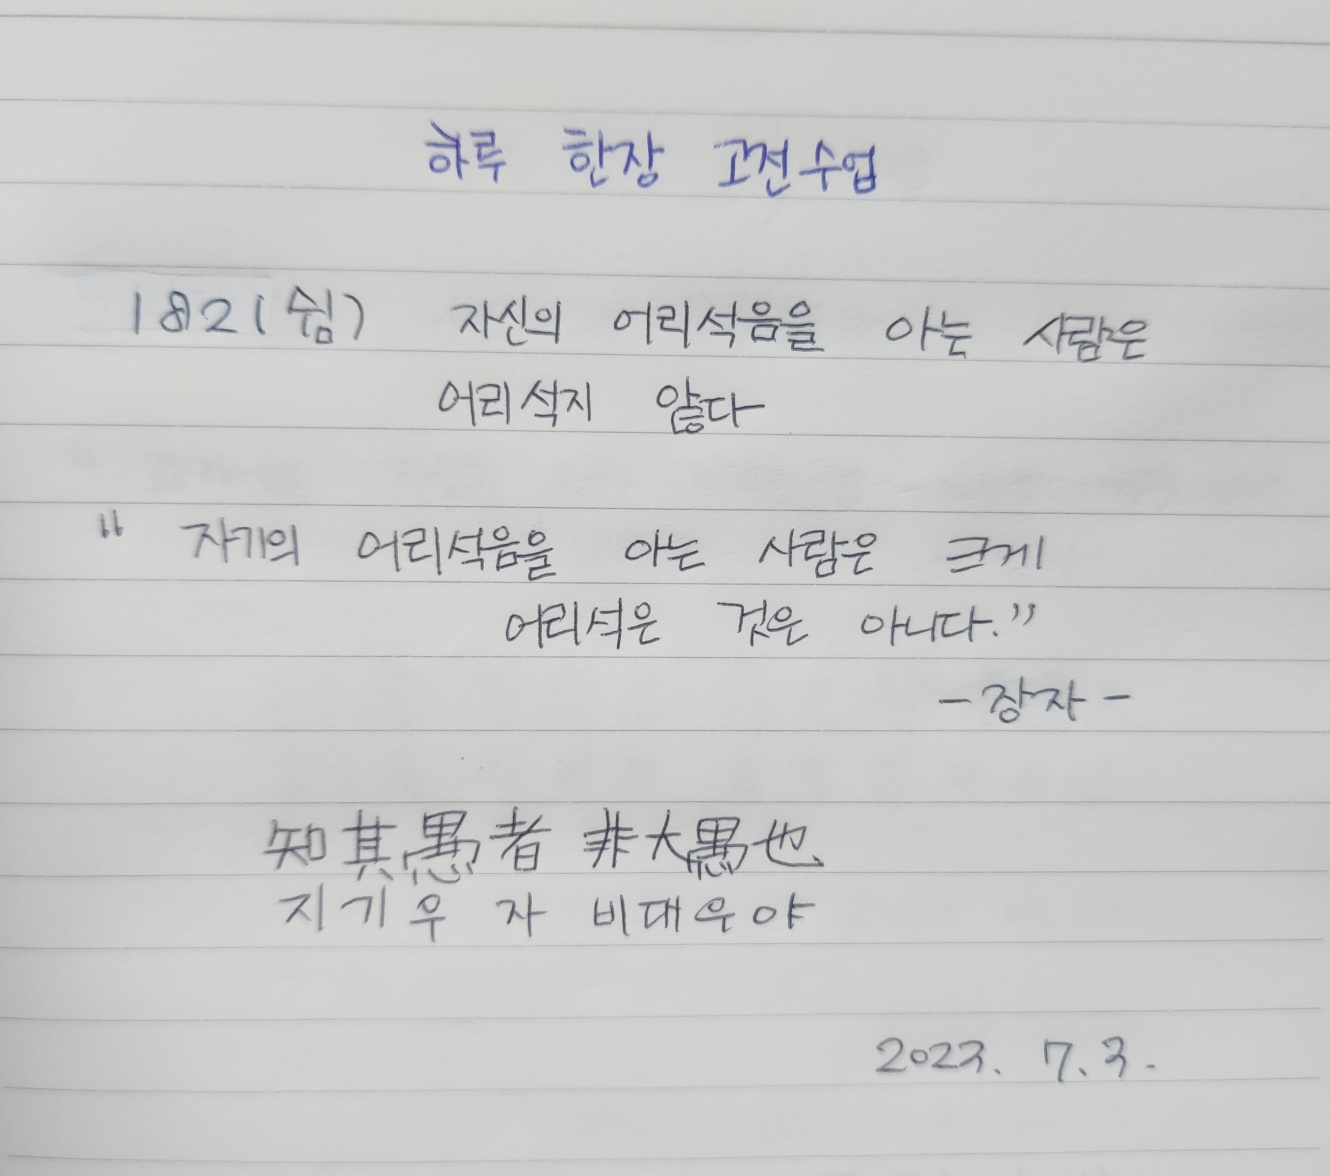 하루 한장 고전수업
182(쉼) 자신의 어리석음을 아는 사람은
어리석지 않다
" 자기의 어리석음을 아는 사람은 크게
어리석은 것은 아니다."
- 장자 -
知其愚者 非大愚也
지기우 자 비대우야
2023. 7. 3.